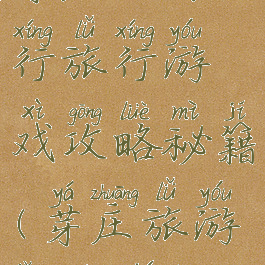 xíng lǚ xíng yóu
行旅行游
xì gōng lüè mì jí
戏攻略秘籍
yá zhuāng lǚ yóu
（芽庄旅游